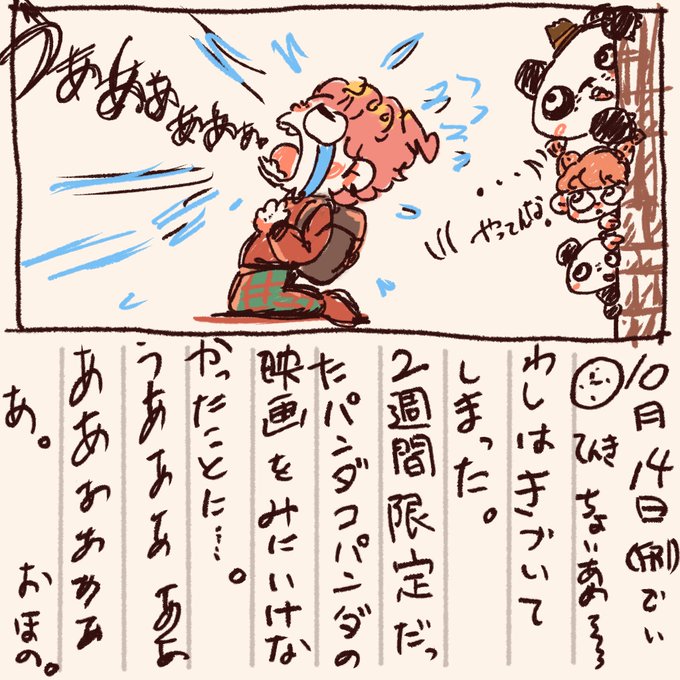 うああああああ。
・・・
やってんな。
10月14日(月)でい
てんき ちょいあめ〜
わしはきづいて
しまった。
2週間限定だっ
たパンダコパンダの
映画をみにいけな
かったことに……。
うああああああ
ああおおああ
あ。 おほの。